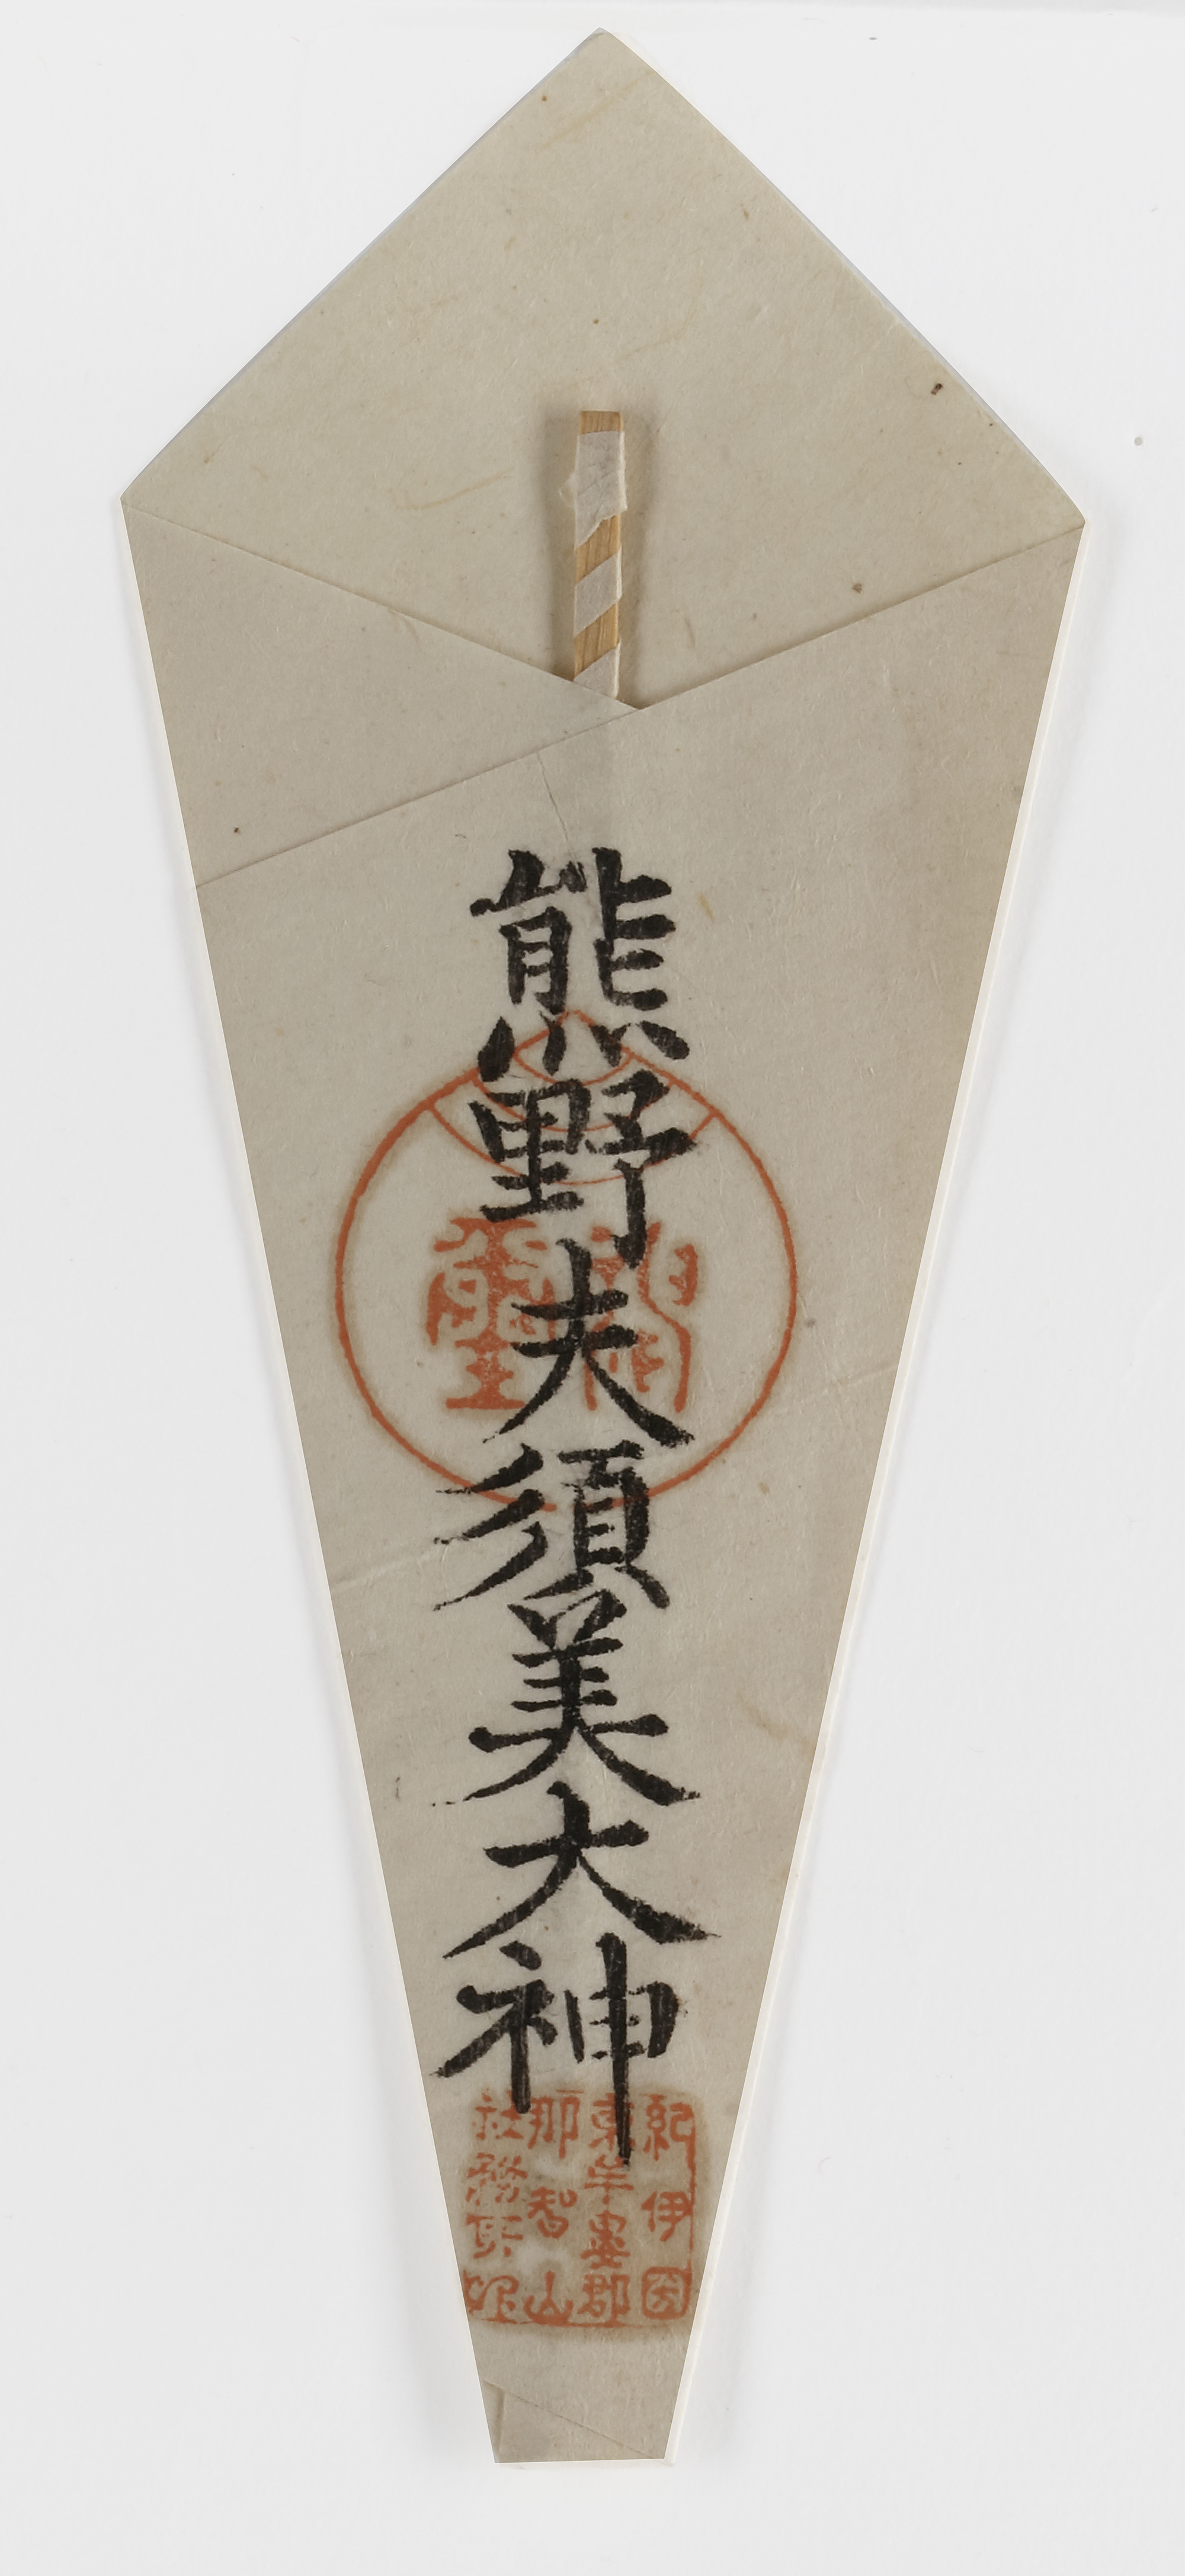 熊野夫須美大神
紀伊国
東牟婁郡
那智山
社務所印